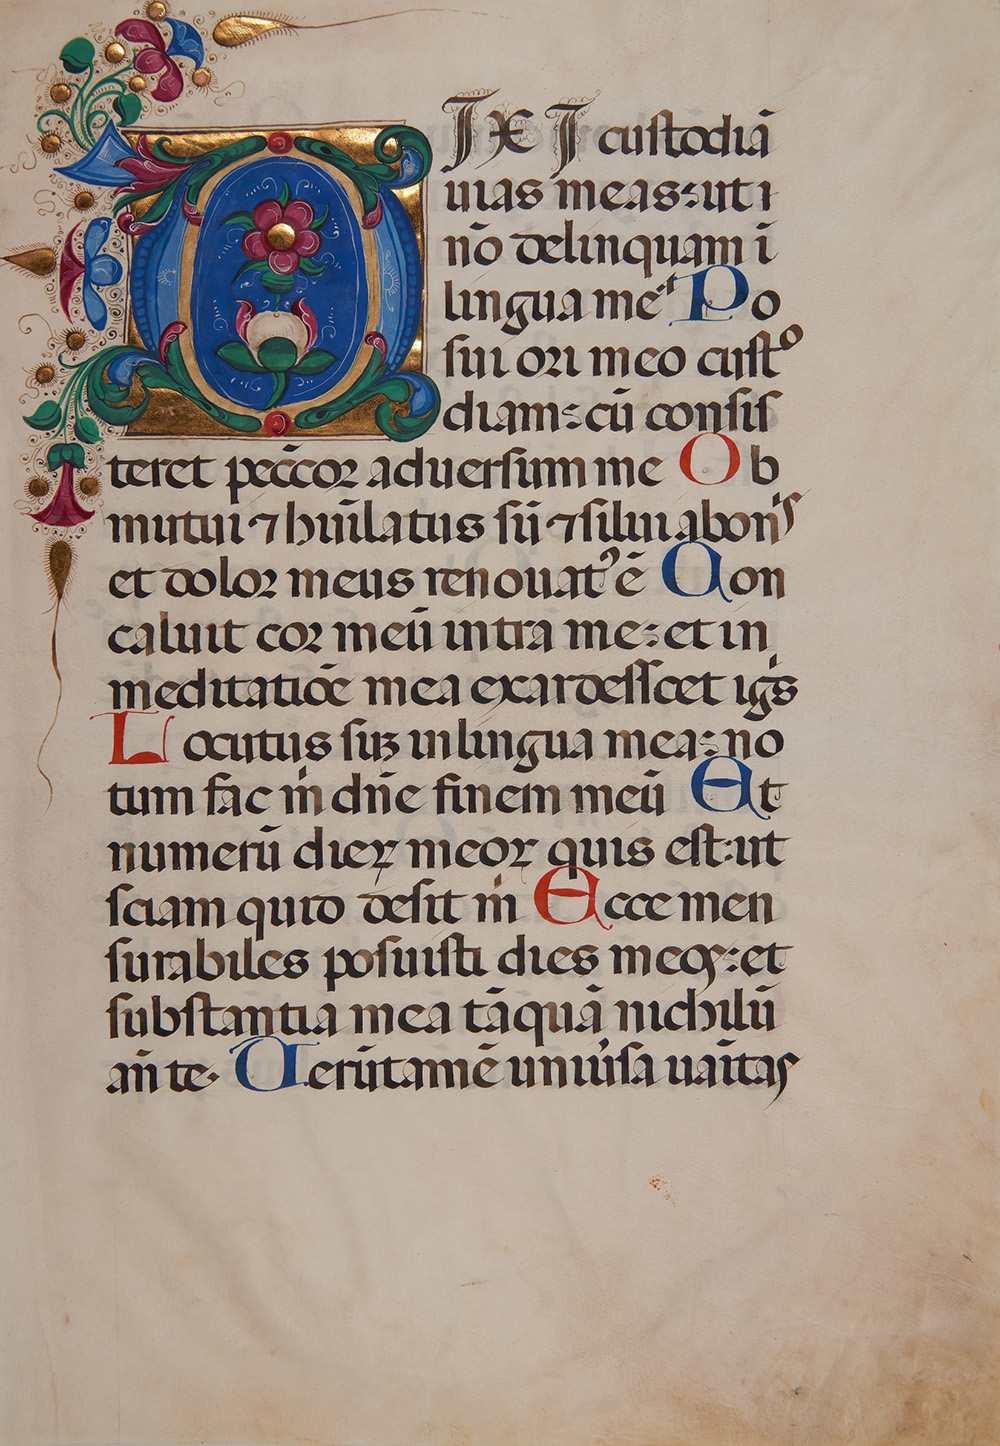 DIXI custodiā
uias meas: ut ī
nō delinquam ī
lingua meᵃ Po
sui ori meo custᵒ
diam: cū consis
teret peccōꝛ adversum me Ob
mutui ⁊ hūilatus sū ⁊ silui abonˢ
et doloꝛ meus renouatꝰ ē Con
caluit coꝛ meū intra me: et in
meditatiōe mea exardesscet igˢ
Locutus sūꝫ in lingua mea: no
tum fac m̄ dn̄e finem meū Et
numerū dieꝝ meoꝝ quis est: ut
sciam quid desit m̄ Ecce men
surabiles posuisti dies meos: et
substantia mea tāquā nichilū
an̄ te. Uerūtamē uniūsa uaītas